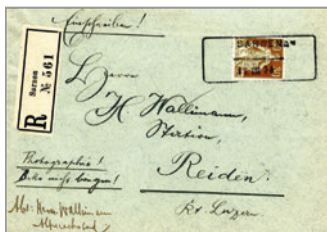 Einschreiben!
SARNEN
R Sarnen № 561
Herrn
H. Wallimann,
Station,
Reiden.
Kt. Luzern.
Photographie!
Bitte nicht biegen!
Abs: Herm. Wallimann
Alpnachstad